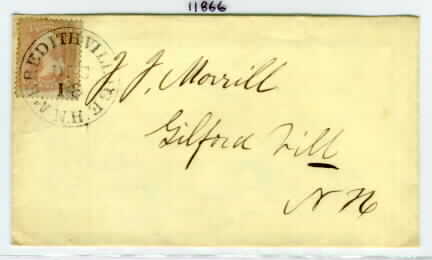 11866
MEREDITH VILLAGE N.H.
18
J J. Morrill
Gilford Vill
N H